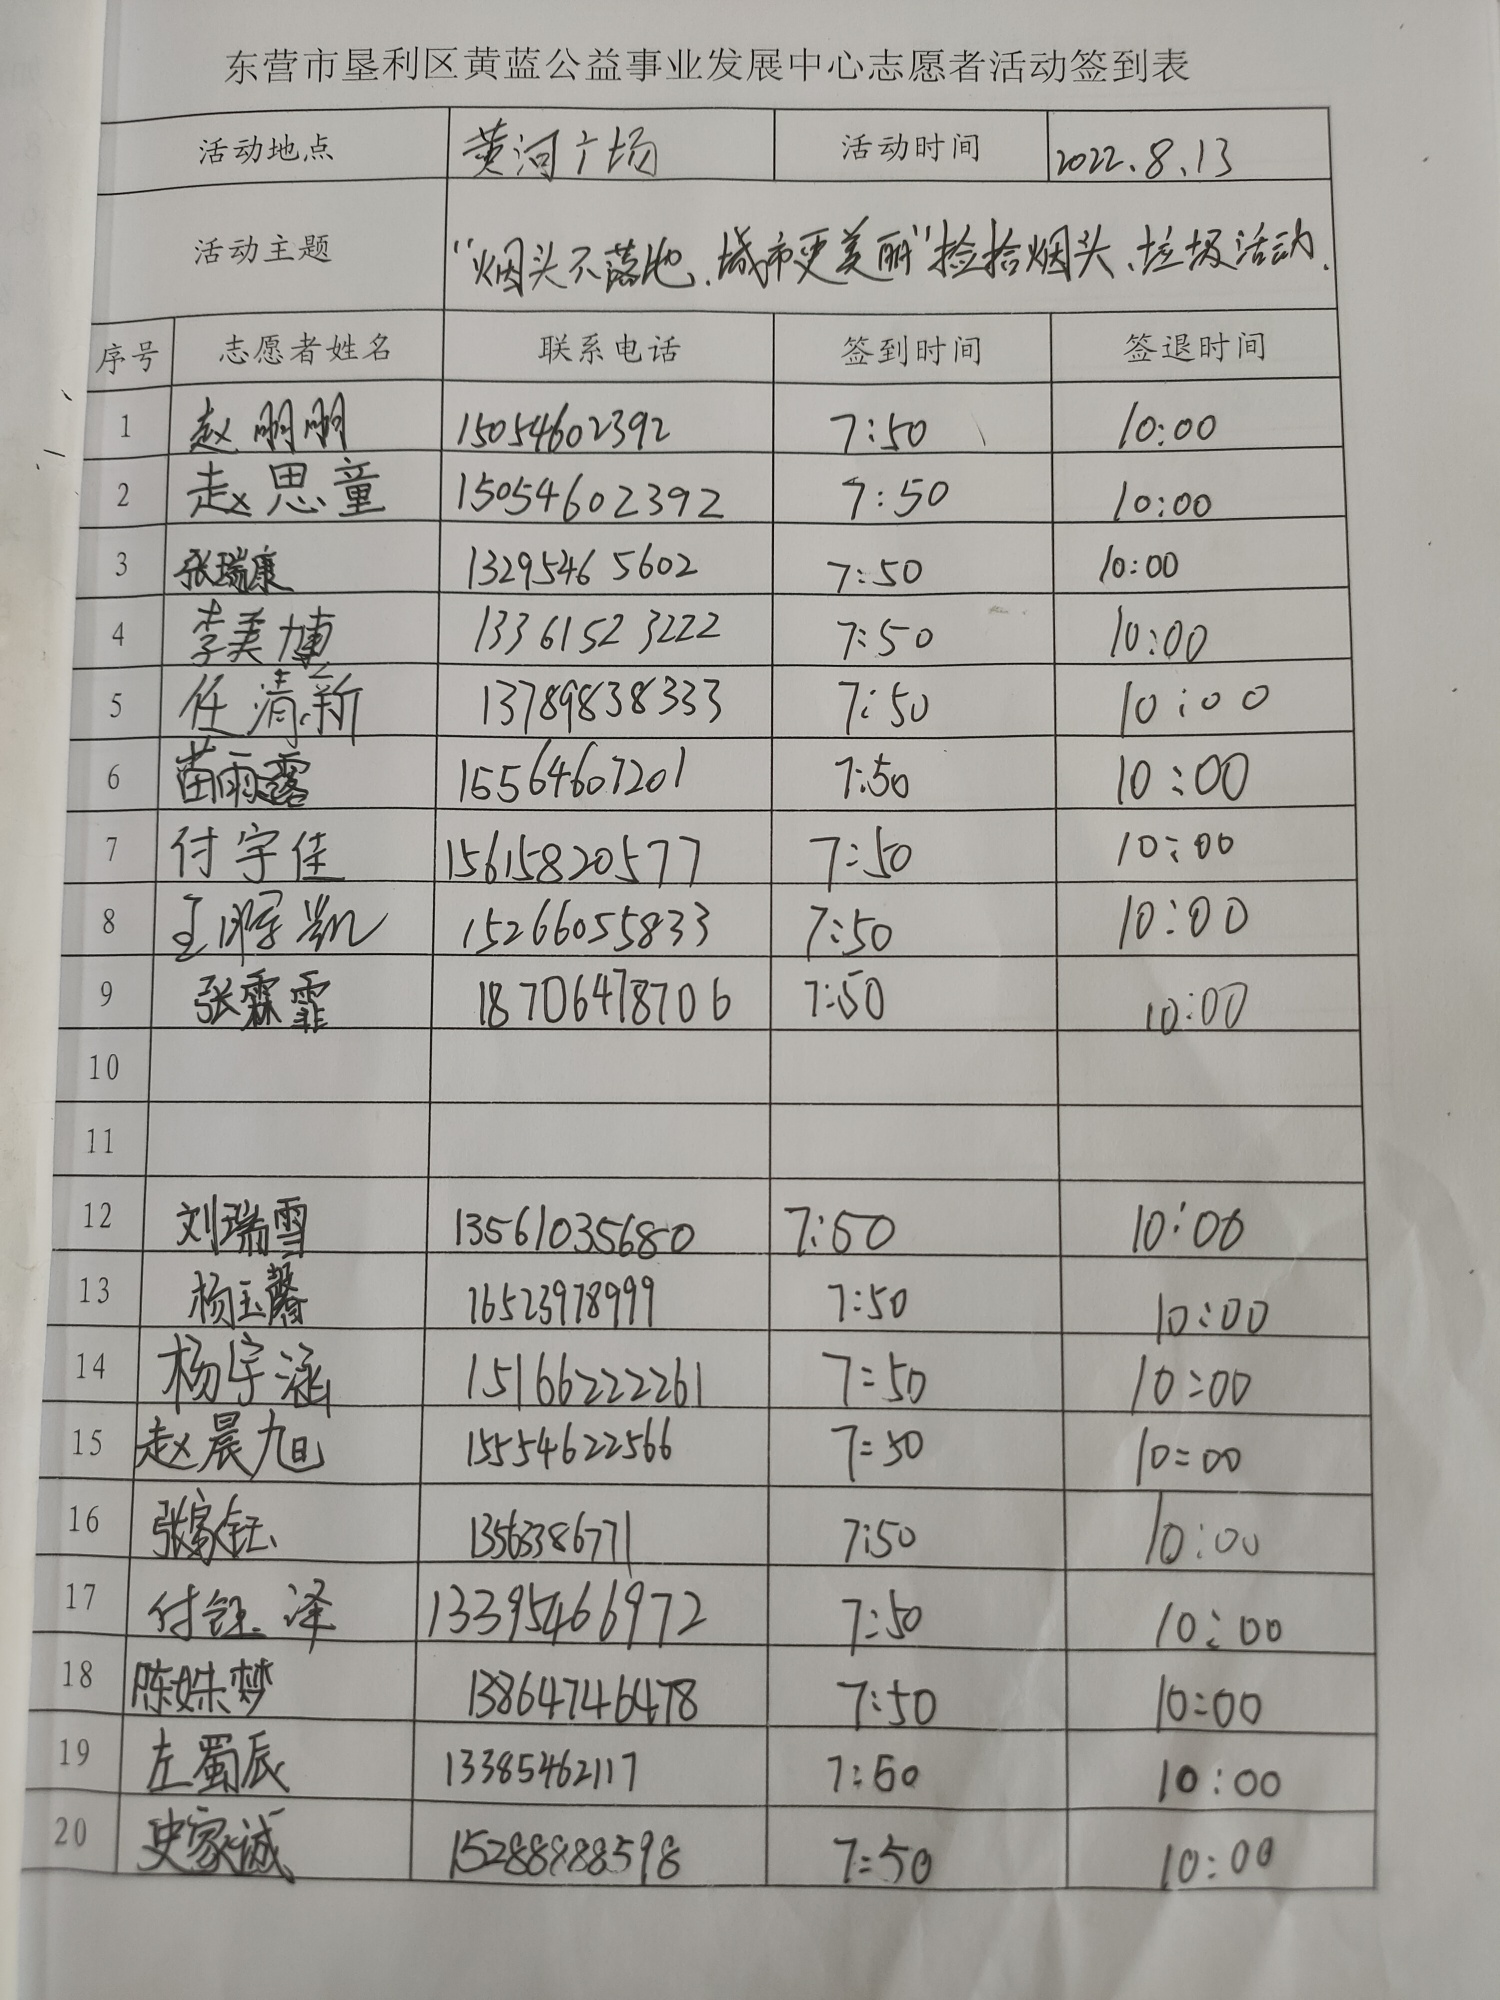 东营市垦利区黄蓝公益事业发展中心志愿者活动签到表
活动地点 黄河广场 活动时间 2022.8.13
活动主题 “烟头不落地、城市更美丽”捡拾烟头、垃圾活动.
序号 志愿者姓名 联系电话 签到时间 签退时间
1 赵明明 15054602392 7:50 10:00
2 赵思童 15054602392 7:50 10:00
3 张瑞康 13295465602 7:50 10:00
4 李美博 13361523222 7:50 10:00
5 任清新 13789838333 7:50 10:00
6 苗雨露 15564607201 7:50 10:00
7 付宇佳 15615820577 7:50 10:00
8 王 凯 15266055833 7:50 10:00
9 张霖霏 18706478706 7:50 10:00
10
11
12 刘瑞雪 13561035680 7:50 10:00
13 杨玉馨 76523978999 7:50 10:00
14 杨宇涵 15166222261 7:50 10:00
15 赵晨旭 15554622566 7:50 10:00
16 张家钰 13563386771 7:50 10:00
17 付钰泽 13395466972 7:50 10:00
18 陈姝梦 13864746478 7:50 10:00
19 左蜀辰 13385462117 7:50 10:00
20 史家诚 15288888598 7:50 10:00